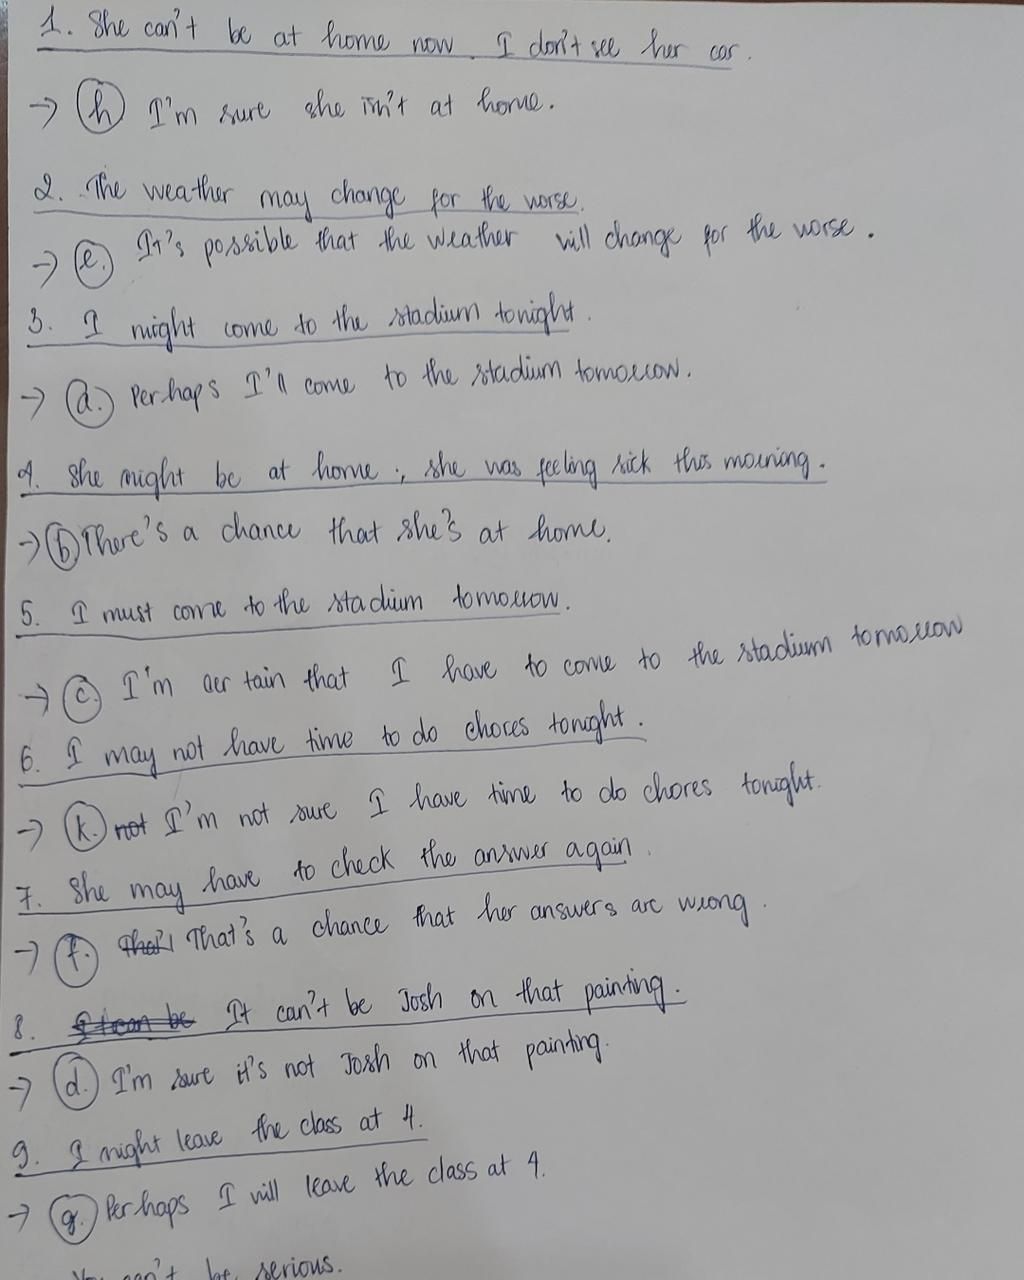 1. She can't be at home now. I don't see her car.
→ (h) I'm sure she isn't at home.
2. The weather may change for the worse.
→ (e.) It's possible that the weather will change for the worse.
3. I might come to the stadium tonight.
→ (a.) Perhaps I'll come to the stadium tomorrow.
4. She might be at home, she was feeling sick this morning.
→ (b) There's a chance that she's at home.
5. I must come to the stadium tomorrow.
→ (c.) I'm cer tain that I have to come to the stadium tomorrow
6. I may not have time to do chores tonight.
→ (k.) not I'm not sure I have time to do chores tonight.
7. She may have to check the answer again.
→ (f.) That's a chance that her answers are wrong.
8. It can be It can't be Josh on that painting.
→ (d.) I'm sure it's not Josh on that painting.
9. I might leave the class at 4.
→ (g.) Perhaps I will leave the class at 4.
You can't be serious.